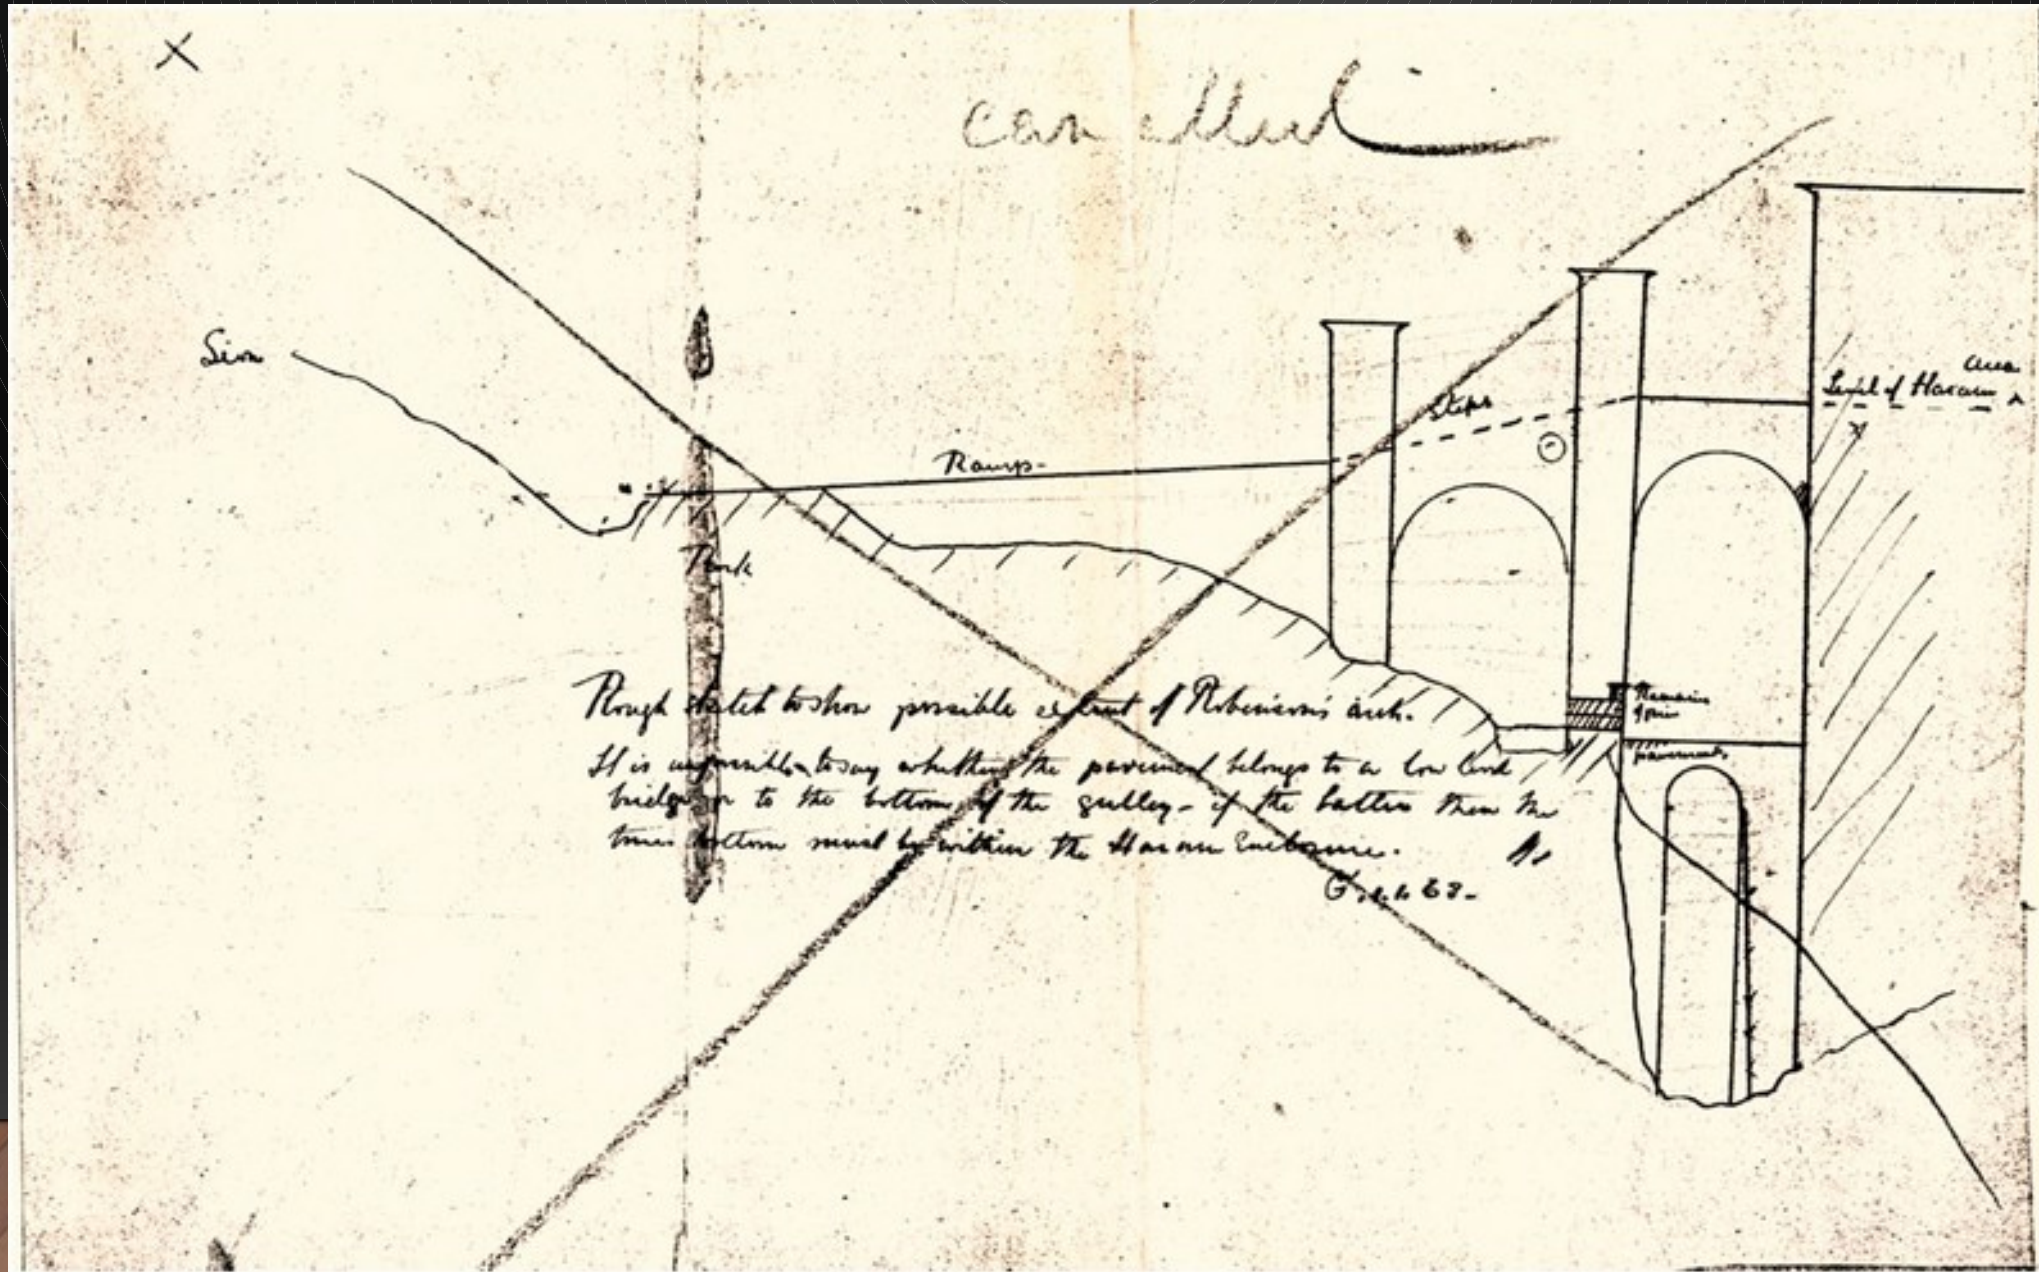 X
cancelled
Sion
Area
Level of Haram
Steps
Ramp
Rock
Remains
of pier
Pavement
Rough sketch to show possible extent of Robinson's arch.
It is impossible to say whether the pavement belongs to a low level
bridge or to the bottom of the gulley - if the latter then the
true bottom must be within the Haram Enclosure.